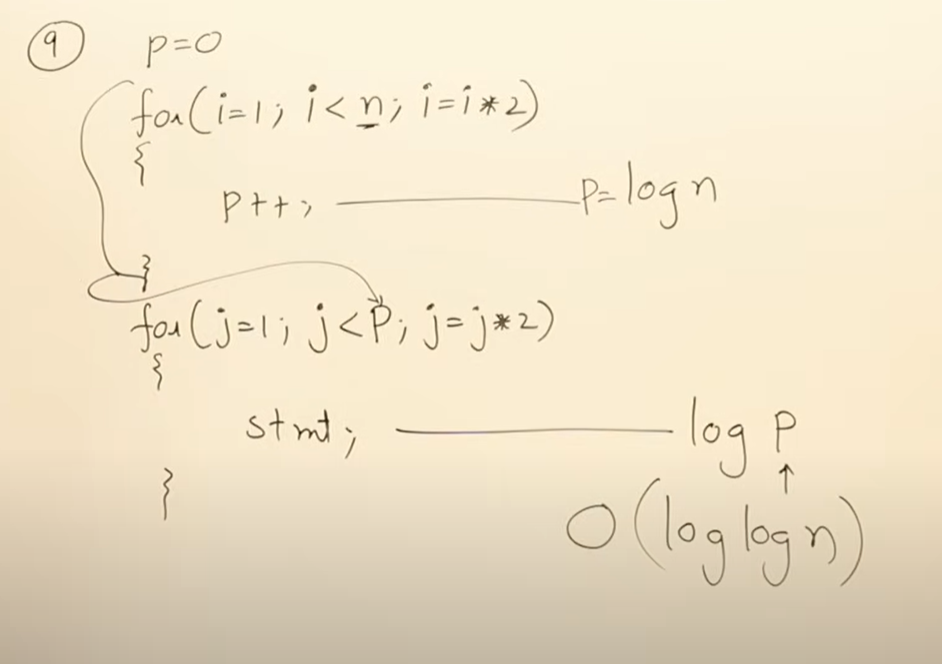 9 p=0
for(i=1; i<n; i=i*2)
{
p++; p=logn
}
for(j=1; j<P; j=j*2)
{
stmt; log P
↑
}
O(log log n)